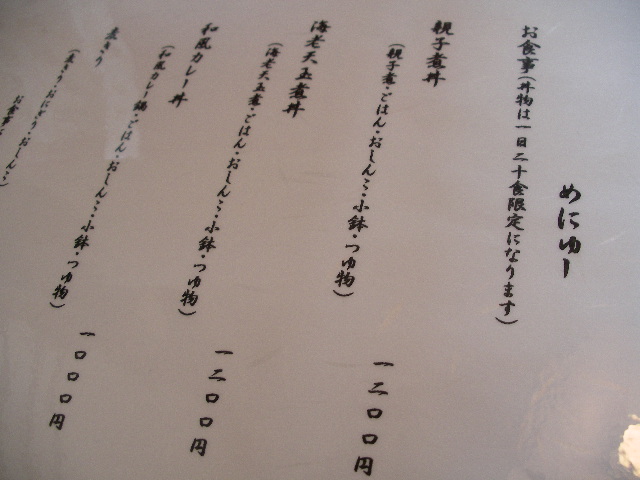 めにゅー
お食事(丼物は一日二十食限定になります)
親子煮丼
(親子煮・ごはん・おしんこ・小鉢・つゆ物)
一二〇〇円
海老天玉煮丼
(海老天玉煮・ごはん・おしんこ・小鉢・つゆ物)
一二〇〇円
和風カレー丼
(和風カレー鍋・ごはん・おしんこ・小鉢・つゆ物)
一〇〇〇円
お食事